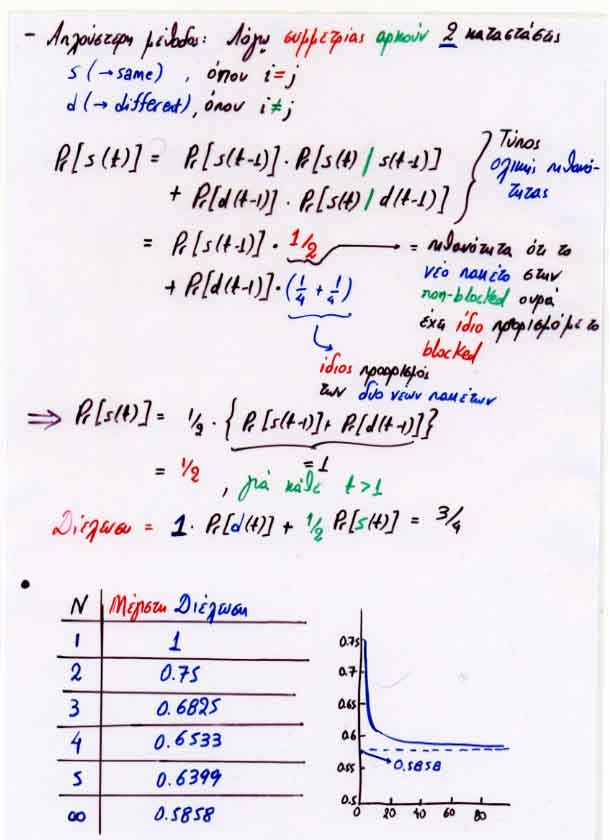 - Απλούστερη μέθοδος: Λόγω συμμετρίας αρκούν 2 καταστάσεις
s (→same) , όπου i=j
d (→different), όπου i≠j
Pr[s(t)] = Pr[s(t-1)]·Pr[s(t)/s(t-1)]
+ Pr[d(t-1)]·Pr[s(t)/d(t-1)]
Τύπος
ολικής πιθανό-
τητας
= Pr[s(t-1)]·1/2
+ Pr[d(t-1)]·(1/4 + 1/4)
= πιθανότητα ότι το
νέο πακέτο στην
non-blocked ουρά
έχει ίδιο προορισμό με το
blocked
ίδιος προορισμός
των δύο νέων πακέτων
⇒ Pr[s(t)] = 1/2 · { Pr[s(t-1)] + Pr[d(t-1)] }
=1
= 1/2 , για κάθε t>1
Διέλευση = 1·Pr[d(t)] + 1/2 Pr[s(t)] = 3/4
N Μέγιστη Διέλευση
1 1
2 0.75
3 0.6825
4 0.6533
5 0.6399
∞ 0.5858
0.75
0.7
0.65
0.6
0.55
0.5
0.5858
0 20 40 60 80